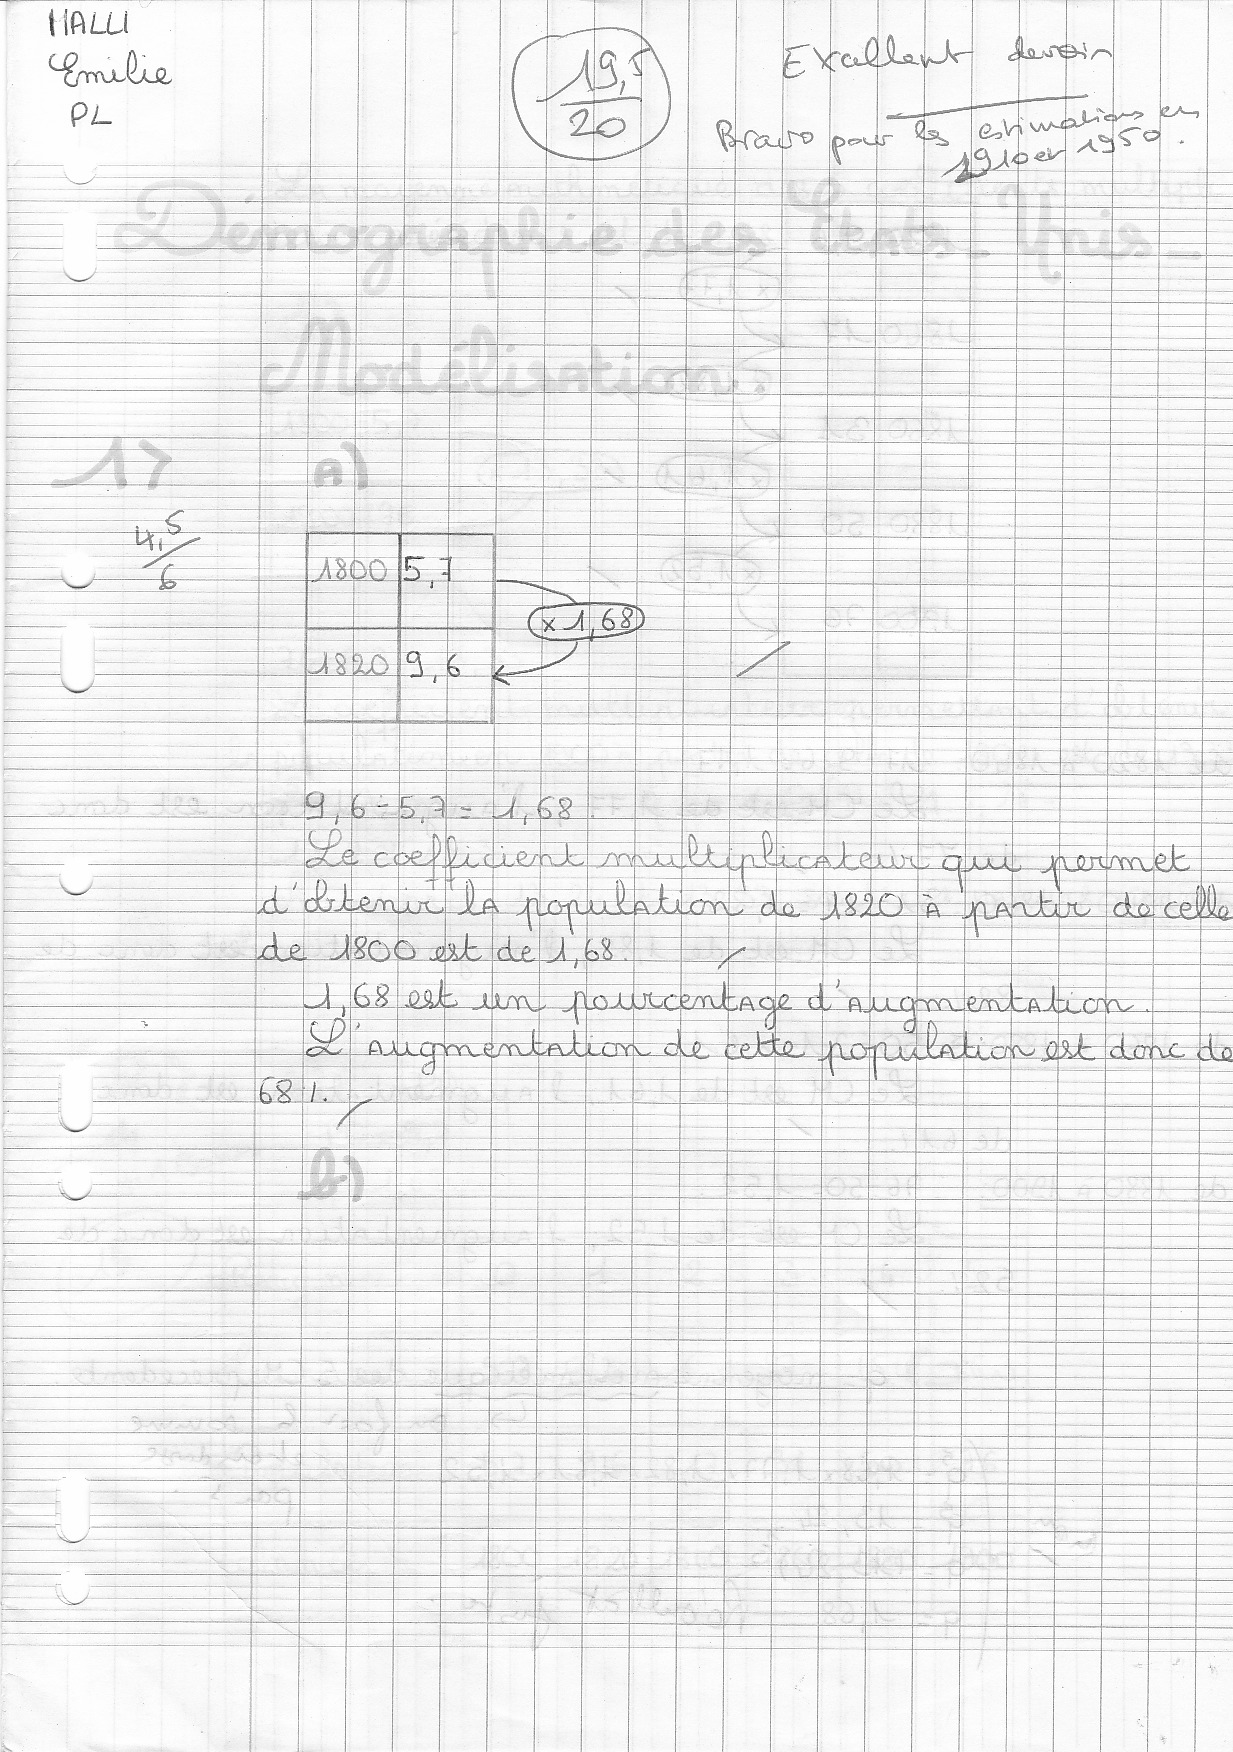 HALLI
Emilie
PL
19,5
20
Exallent devoir
Bravo pour les estimations en
1910 et 1950.
Démographie des Etats-Unis-
Modélisation.
17
A)
4,5
6
1800 5,7
× 1,68
1820 9,6
9,6 ÷ 5,7 = 1,68.
Le coefficient multiplicateur qui permet
d'obtenir la population de 1820 à partir de celle
de 1800 est de 1,68.
1,68 est un pourcentage d'augmentation.
L'augmentation de cette population est donc de
68%.
b)